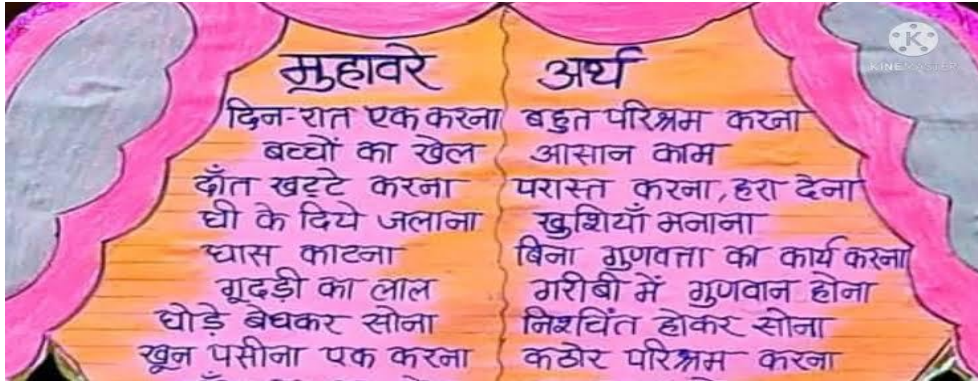 मुहावरे अर्थ
दिन-रात एक करना बहुत परिश्रम करना
बच्चों का खेल आसान काम
दाँत खट्टे करना परास्त करना, हरा देना
घी के दिये जलाना खुशियाँ मनाना
घास काटना बिना गुणवत्ता का कार्य करना
गूदड़ी का लाल गरीबी में गुणवान होना
घोड़े बेचकर सोना निश्चिंत होकर सोना
खून पसीना एक करना कठोर परिश्रम करना
KINEMASTER